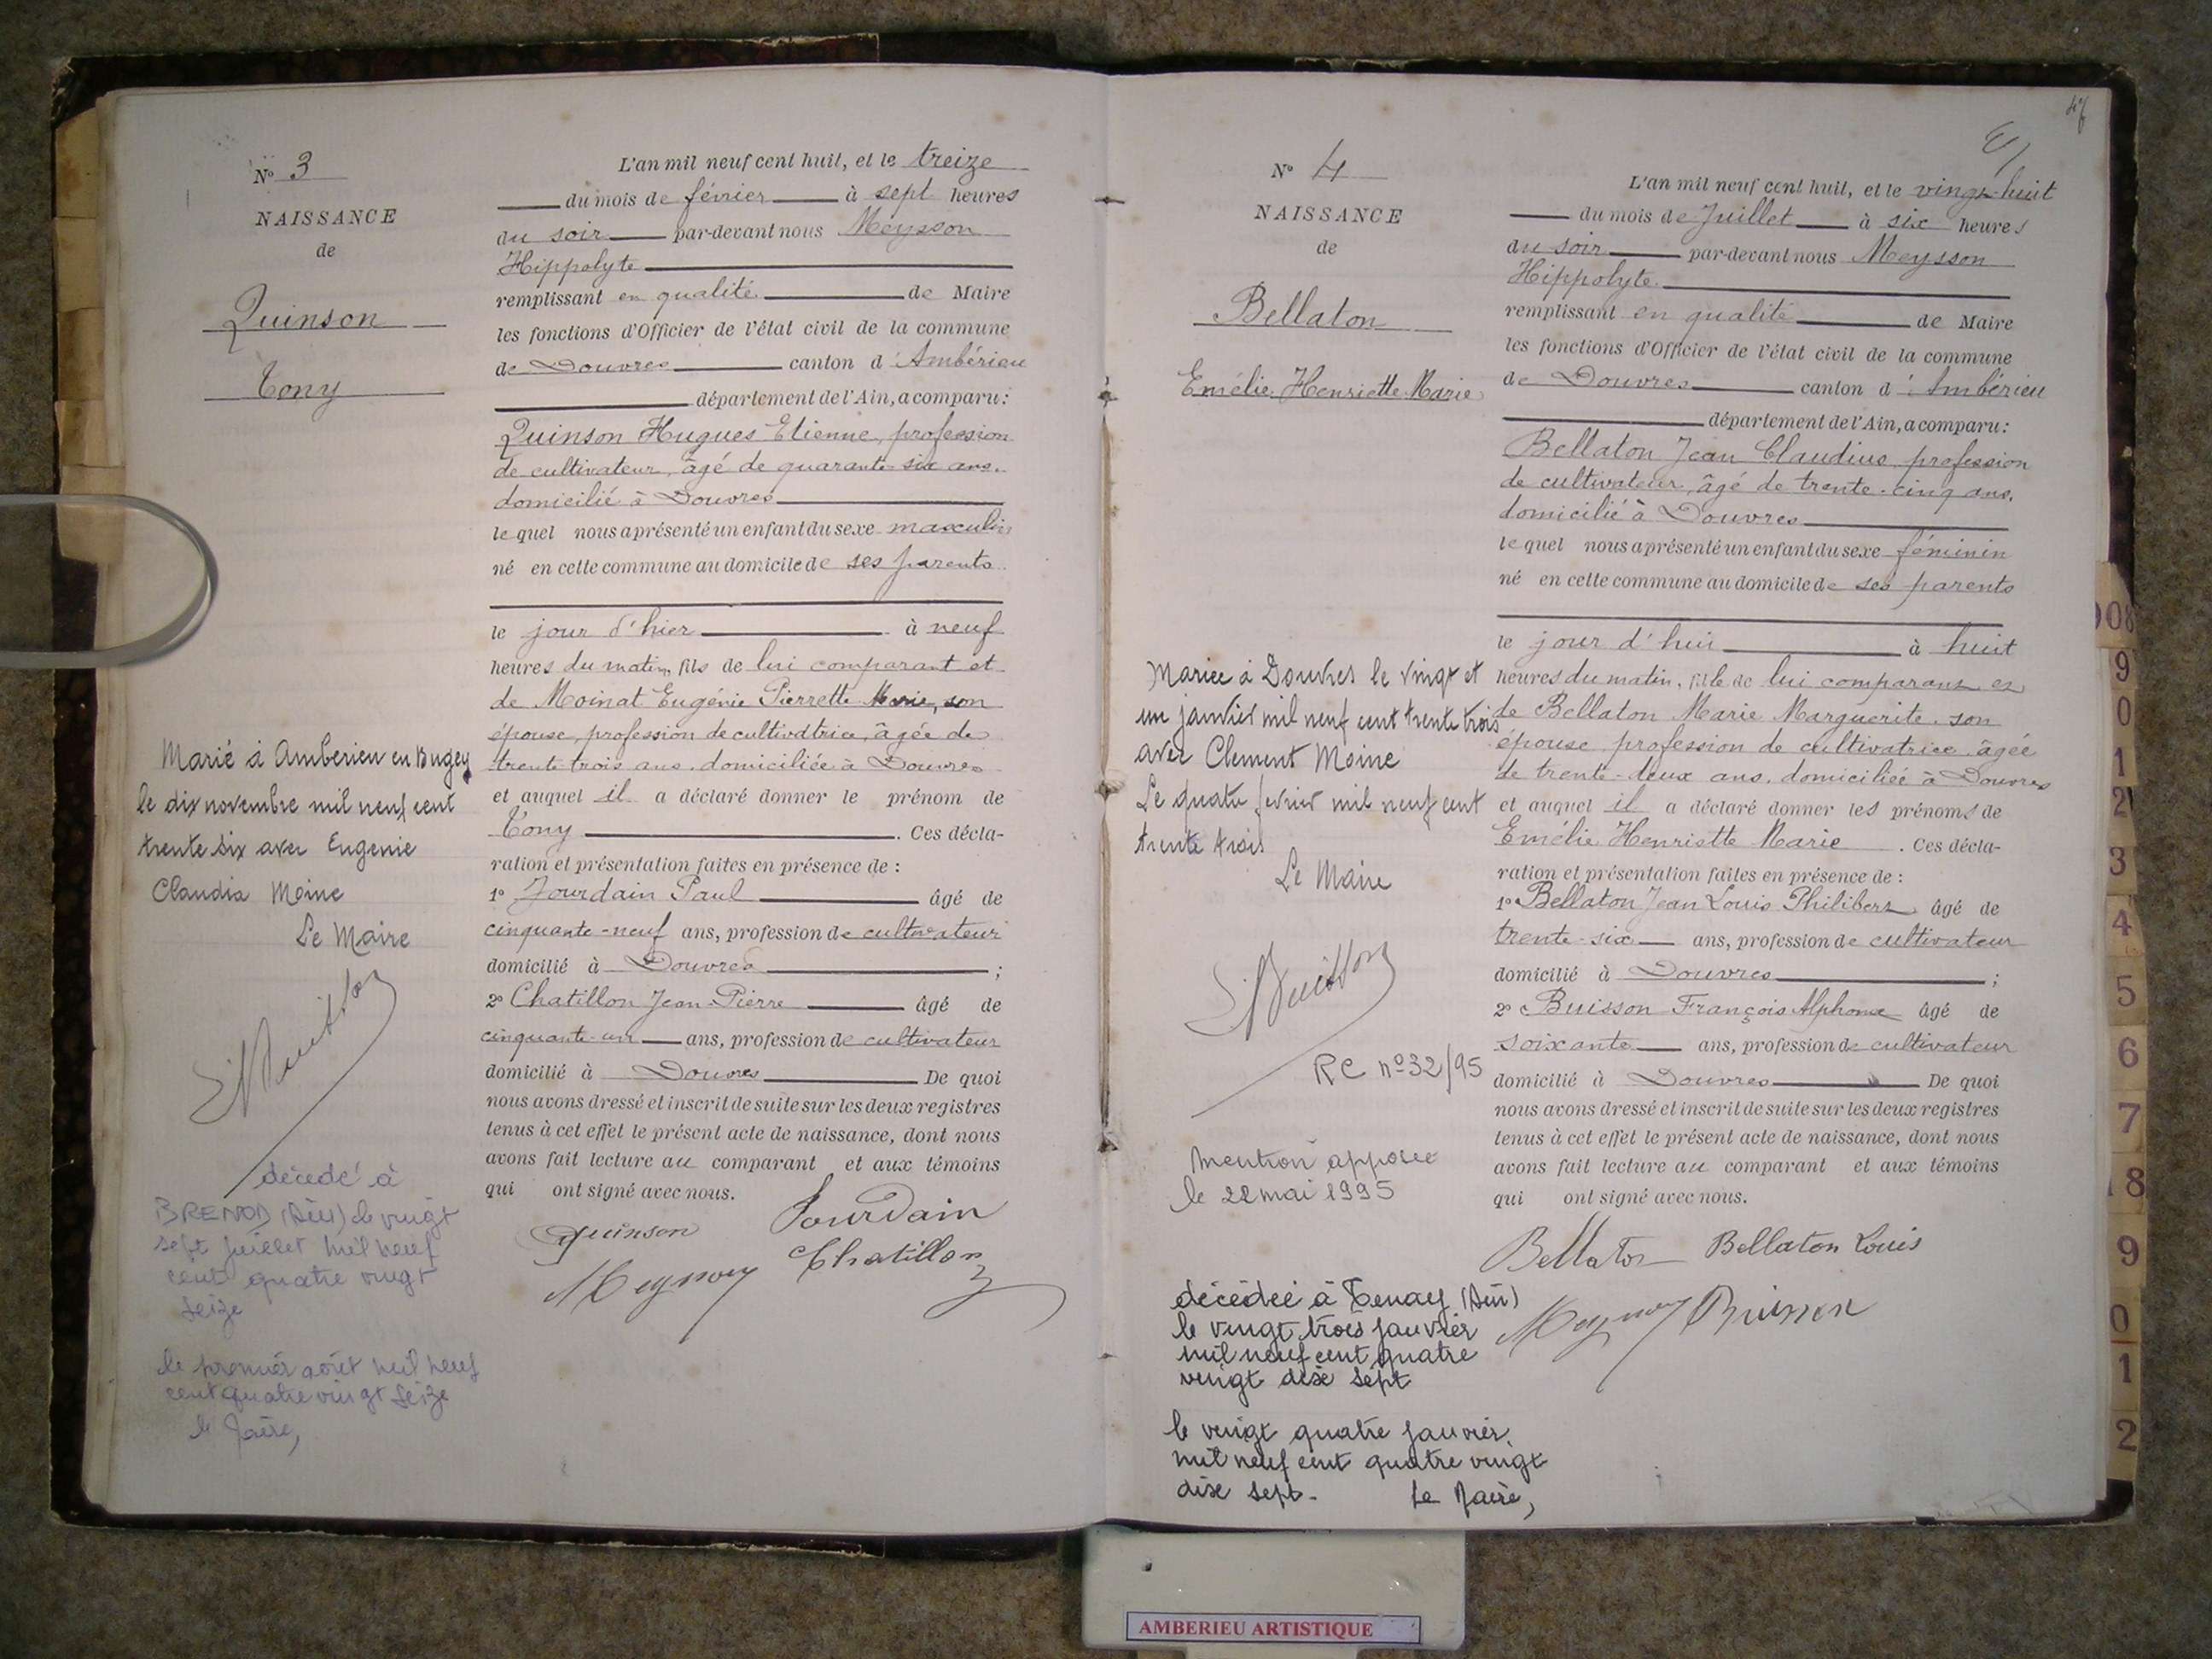 Nº 3
NAISSANCE
de
Quinson
Tony
Marié à Amberieu en Bugey
le dix novembre mil neuf cent
trente six avec Eugenie
Claudia Moine
Le Maire
décédé à
BRENOD (Ain) le vingt
sept juillet mil neuf
cent quatre vingt
seize
le premier août mil neuf
cent quatre vingt seize
le Maire,
L'an mil neuf cent huit, et le treize
du mois de février à sept heures
du soir par-devant nous Meysson
Hippolyte
remplissant en qualité de Maire
les fonctions d'Officier de l'état civil de la commune
de Douvres canton d'Ambérieu
département de l'Ain, a comparu :
Quinson Hugues Etienne, profession
de cultivateur, âgé de quarante-six ans.
domicilié à Douvres
le quel nous a présenté un enfant du sexe masculin
né en cette commune au domicile de ses parents
le jour d'hier à neuf
heures du matin, fils de lui comparant et
de Moinat Eugénie Pierrette Marie, son
épouse, profession de cultivatrice, âgée de
trente trois ans, domiciliée à Douvres
et auquel il a déclaré donner le prénom de
Tony . Ces décla-
ration et présentation faites en présence de :
1º Jourdain Paul âgé de
cinquante-neuf ans, profession de cultivateur
domicilié à Douvres ;
2º Chatillon Jean-Pierre âgé de
cinquante-un ans, profession de cultivateur
domicilié à Douvres De quoi
nous avons dressé et inscrit de suite sur les deux registres
tenus à cet effet le présent acte de naissance, dont nous
avons fait lecture au comparant et aux témoins
qui ont signé avec nous.
Quinson Jourdain
Meysson Chatillon
Nº 4
NAISSANCE
de
Bellaton
Emélie Henriette Marie
Mariée à Douvres le vingt et
un janvier mil neuf cent trente trois
avec Clement Moine
Le quatre fevrier mil neuf cent
trente trois
Le Maire
RC nº 32/95
mention apposée
le 22 mai 1995
décédée à Tenay (Ain)
le vingt trois janvier
mil neuf cent quatre
vingt dix sept
le vingt quatre janvier
mil neuf cent quatre vingt
dix sept.
Le Maire,
L'an mil neuf cent huit, et le vingt-huit
du mois de Juillet à six heures
du soir par-devant nous Meysson
Hippolyte.
remplissant en qualité de Maire
les fonctions d'Officier de l'état civil de la commune
de Douvres canton d'Ambérieu
département de l'Ain, a comparu :
Bellaton Jean Claudius, profession
de cultivateur, âgé de trente-cinq ans.
domicilié à Douvres
le quel nous a présenté un enfant du sexe féminin
né en cette commune au domicile de ses parents
le jour d'hui à huit
heures du matin, fille de lui comparant et
de Bellaton Marie Marguerite, son
épouse, profession de cultivatrice, âgée
de trente-deux ans, domiciliée à Douvres
et auquel il a déclaré donner les prénoms de
Emélie Henriette Marie . Ces décla-
ration et présentation faites en présence de :
1º Bellaton Jean Louis Philibert âgé de
trente-six ans, profession de cultivateur
domicilié à Douvres ;
2º Buisson François Alphonse âgé de
soixante ans, profession de cultivateur
domicilié à Douvres De quoi
nous avons dressé et inscrit de suite sur les deux registres
tenus à cet effet le présent acte de naissance, dont nous
avons fait lecture au comparant et aux témoins
qui ont signé avec nous.
Bellaton Bellaton Louis
Meysson Buisson
908
9
0
1
2
3
4
5
6
7
18
9
0
1
2
AMBERIEU ARTISTIQUE